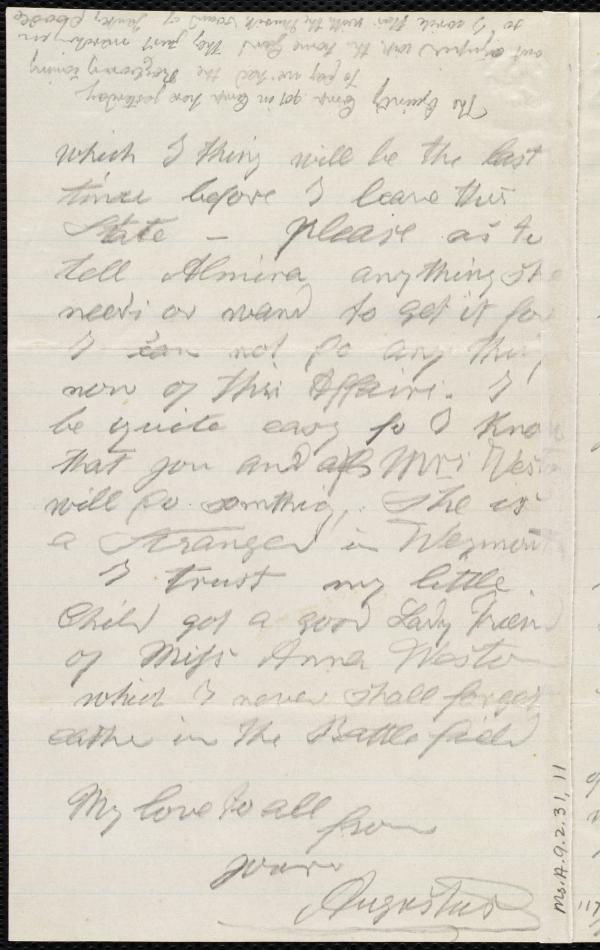 which I thing will be the last
time before I leave this
State – please as to
tell Almira anything she
needs or want to get it for
I can not do any thing
now of this Affairs. I
be quite easy so I know
that you and als Mrs Wes
will do somthig,. She is
a Stranger in Weymout
I trust my little
Child got a good Lady Frien
of Miss Anna Weston
which I never shall forget
eather in the Battle field
My love to all
from
yours
Augustus
The Quincy Comp. got in Camp here yesterday
To day we had the Regiment
out with the home Guard They just marching in
so I write this with the Musik sound of Yankey Doodle
Ms.A.9.2.31,11